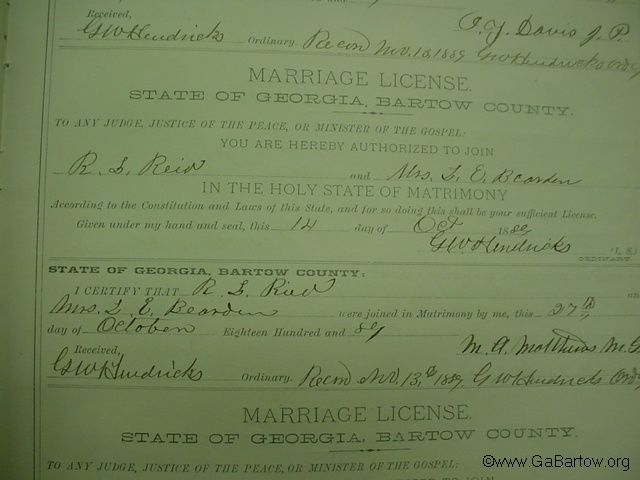 Received,
GWHendricks Ordinary. Recod Nov, 13, 1889 GWHendricks Ordy
O. Y. Davis J. P.
MARRIAGE LICENSE.
STATE OF GEORGIA, BARTOW COUNTY.
TO ANY JUDGE, JUSTICE OF THE PEACE, OR MINISTER OF THE GOSPEL:
YOU ARE HEREBY AUTHORIZED TO JOIN
R. L. Reid and Mrs. L. E. Bearden
IN THE HOLY STATE OF MATRIMONY
According to the Constitution and Laws of this State, and for so doing this shall be your sufficient License.
Given under my hand and seal, this 14 day of Oct 1889
GWHendricks (L. S.)
ORDINARY.
STATE OF GEORGIA, BARTOW COUNTY:
I CERTIFY THAT R. L. Ried an
Mrs. L. E. Bearden were joined in Matrimony by me, this 27th
day of October Eighteen Hundred and 89
M. A. Matthews M. G
Received,
GWHendricks Ordinary. Recod Nov, 13, 1889, GWHendricks Ordy
MARRIAGE LICENSE.
STATE OF GEORGIA, BARTOW COUNTY.
TO ANY JUDGE, JUSTICE OF THE PEACE, OR MINISTER OF THE GOSPEL:
©www.GaBartow.org